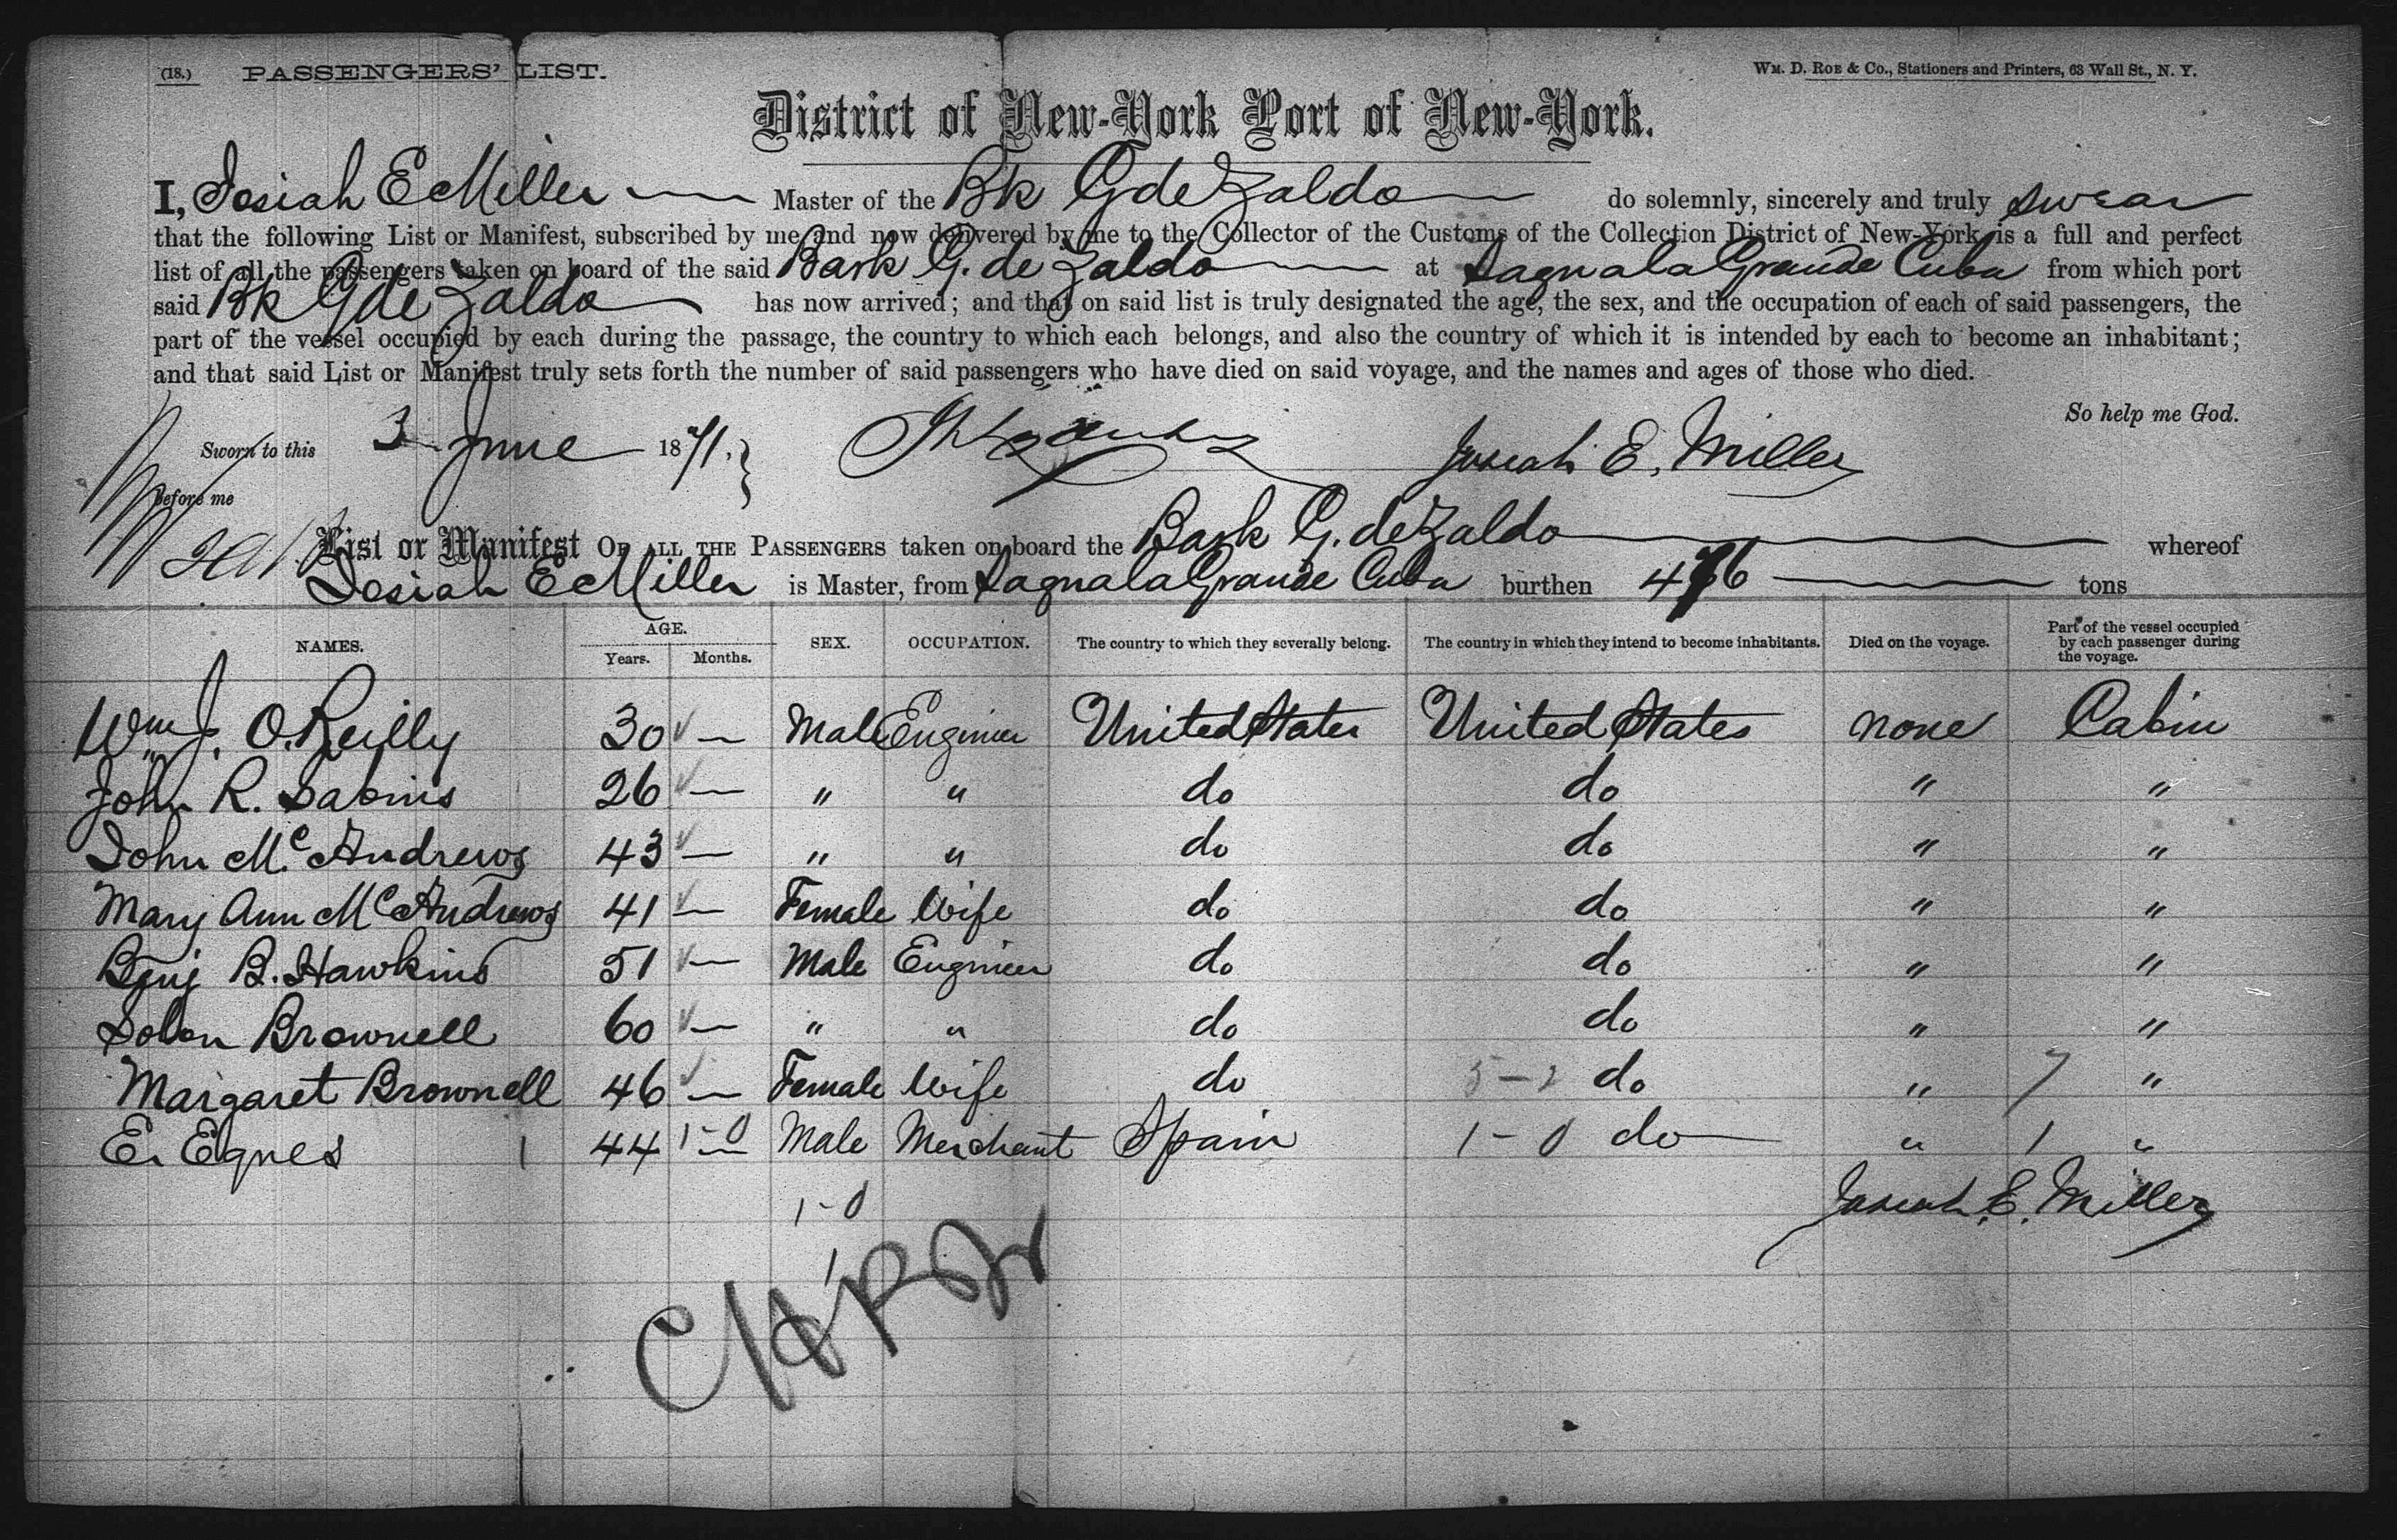 (18.) PASSENGERS' LIST. Wm. D. Roe & Co., Stationers and Printers, 63 Wall St., N. Y.
District of New-York Port of New-York.
I, Josiah E Miller Master of the Bk G de Zaldo do solemnly, sincerely and truly swear
that the following List or Manifest, subscribed by me and now delivered by me to the Collector of the Customs of the Collection District of New-York, is a full and perfect
list of all the passengers taken on board of the said Bark G. de Zaldo at Sagua la Grande Cuba from which port
said Bk G de Zaldo has now arrived; and that on said list is truly designated the age, the sex, and the occupation of each of said passengers, the
part of the vessel occupied by each during the passage, the country to which each belongs, and also the country of which it is intended by each to become an inhabitant;
and that said List or Manifest truly sets forth the number of said passengers who have died on said voyage, and the names and ages of those who died.
So help me God.
Sworn to this 3 June 1871. Josiah E. Miller
Before me
List or Manifest Of all the Passengers taken on board the Bark G. de Zaldo whereof
Josiah E Miller is Master, from Sagua la Grande Cuba burthen 476 tons
NAMES. AGE. Years. Months. SEX. OCCUPATION. The country to which they severally belong. The country in which they intend to become inhabitants. Died on the voyage. Part of the vessel occupied by each passenger during the voyage.
Wm J. O.Reilly 30 — Male Enginier United States United States none Cabin
John R. Sabins 26 — " " do do " "
John Mc Andrews 43 — " " do do " "
Mary Ann McAndrews 41 — Female Wife do do " "
Benj B. Hawkins 51 — Male Enginier do do " "
Solon Brownell 60 — " " do do " "
Margaret Brownell 46 — Female Wife do 5-2 do " 7 "
E. Egues 1 44 1-0 — Male Merchant Spain 1-0 do " 1 "
1-0 Josiah E. Miller